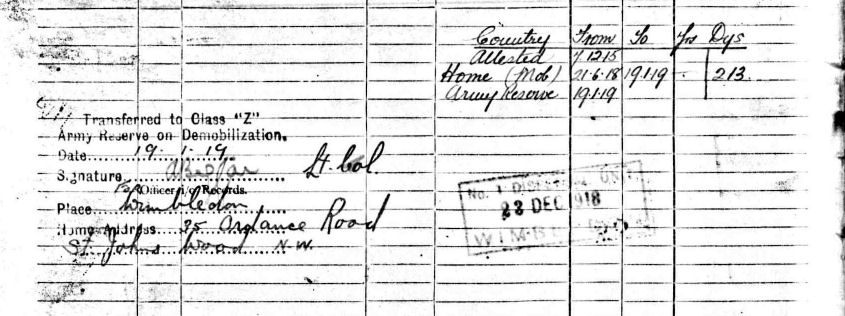 Country From To Yrs Dys
Attested 7.12.15
Home (Mob) 21.6.18 19.1.19 - 213.
Army Reserve 19.1.19
Transferred to Class "Z"
Army Reserve on Demobilization.
Date 19.1.19.
Signature Lt. Col.
For Officer i/c Records.
Place Wimbledon
Home Address 35 Road
St Johns Wood N.W.
No. 1 DISPERSAL UNIT
23 DEC 1918